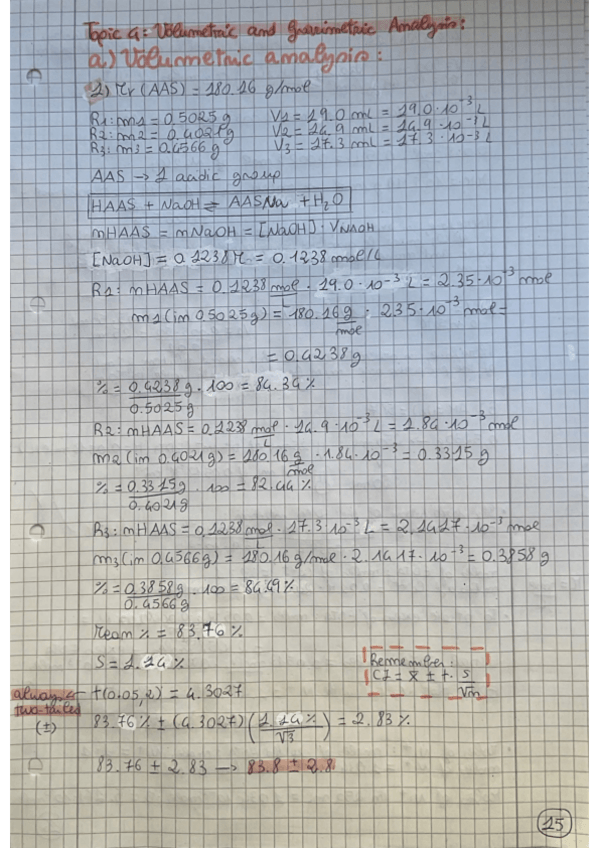 Topic 4: Volumetric and gravimetric Analysis:
a) Volumetric analysis:
1) Mr (AAS) = 180.16 g/mol
R1: m1 = 0.5025 g V1 = 19.0 mL = 19.0·10⁻³ L
R2: m2 = 0.4021 g V2 = 14.9 mL = 14.9·10⁻³ L
R3: m3 = 0.4566 g V3 = 17.3 mL = 17.3·10⁻³ L
AAS → 1 acidic group
HAAS + NaOH ⇌ AASNa + H₂O
nHAAS = nNaOH = [NaOH]·VNaOH
[NaOH] = 0.1238 M = 0.1238 mol/L
R1: nHAAS = 0.1238 mol/L · 19.0·10⁻³ L = 2.35·10⁻³ mol
m1 (in 0.5025g) = 180.16 g/mol · 2.35·10⁻³ mol =
= 0.4238 g
% = 0.4238 g / 0.5025 g · 100 = 84.34 %
R2: nHAAS = 0.1238 mol/L · 14.9·10⁻³ L = 1.84·10⁻³ mol
m2 (in 0.4021g) = 180.16 g/mol · 1.84·10⁻³ = 0.3315 g
% = 0.3315 g / 0.4021 g · 100 = 82.44 %
R3: nHAAS = 0.1238 mol/L · 17.3·10⁻³ L = 2.1417·10⁻³ mol
m3 (in 0.4566 g) = 180.16 g/mol · 2.1417·10⁻³ = 0.3858 g
% = 0.3858 g / 0.4566 g · 100 = 84.49 %
Mean % = 83.76 %
S = 1.14 %
Remember:
CI = x̄ ± t · s/√n
always two-tailed (±)
t(0.05, 2) = 4.3027
83.76 % ± (4.3027) (1.14 % / √3) = 2.83 %
83.76 ± 2.83 → 83.8 ± 2.8
15